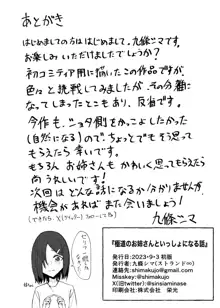 あとがき
はじめましての方ははじめまして。九條ニマです。
お楽しみいただけましたでしょうか？
初コミティア用に描いたこの作品ですが
色々と挑戦してみましたが、その分雑に
なってしまったところもあり、反省です。
今作も、ショタ側をかっこよしたかった
(自然になる)のでちょっとでもそう思って
もらえたら幸いです。
もちろんお姉さんもかわいく思ってもらえたら
向うれしいです！
次回はどんな話になるか分かりませんが、
機会があればまたどこかで！
九條ニマ
『極道のお姉さんといっしょになる話』
発行日：2023-9-3 初版
発行者：九條シマ(ストランド∞)
連絡先：shimakujo@gmail.com
Misskey：@shimakujo
X(旧twitter)：@sinsiaminase
印刷会社：株式会社 栄光